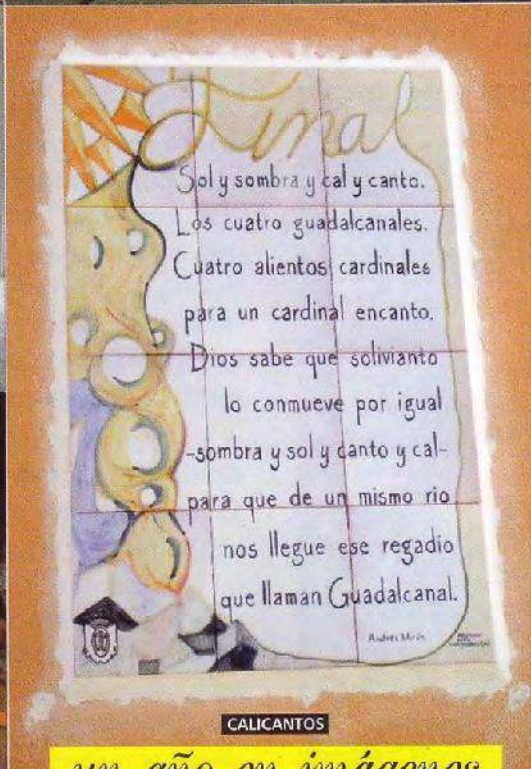 Final
Sol y sombra y cal y canto.
Los cuatro guadalcanales.
Cuatro alientos cardinales
para un cardinal encanto.
Dios sabe que solivianto
lo conmueve por igual
-sombra y sol y canto y cal-
para que de un mismo rio
nos llegue ese regadio
que llaman Guadalcanal.
Andrés Mirón
CALICANTOS
un año en imágenes